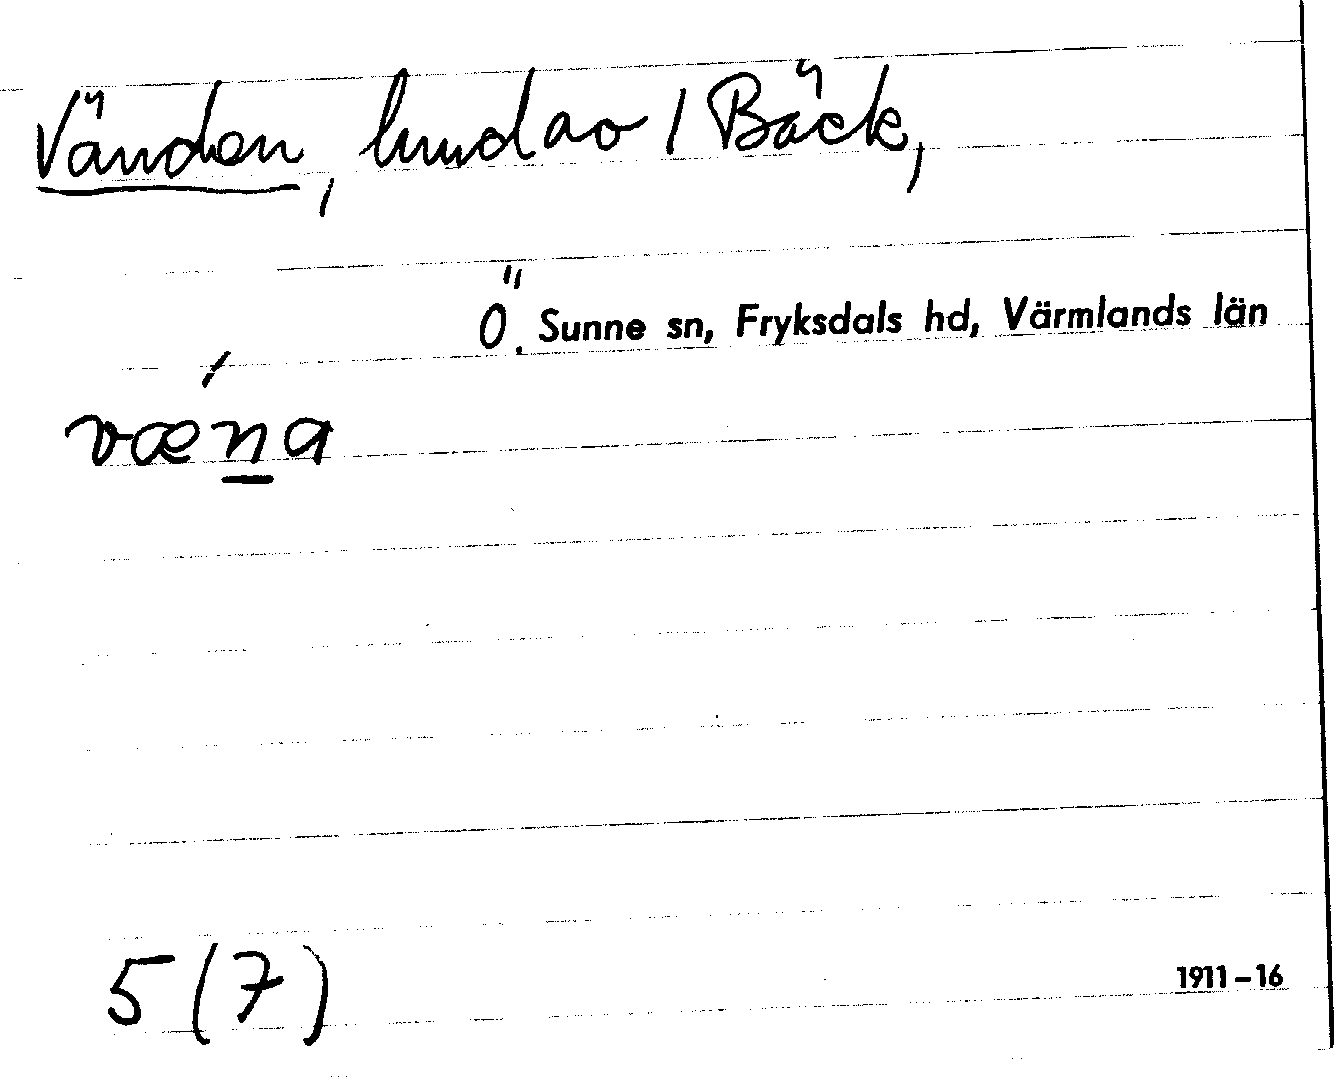 Vänden, lundar i Bäck,
Ö. Sunne sn, Fryksdals hd, Värmlands län
væna
5 (7)
1911–16